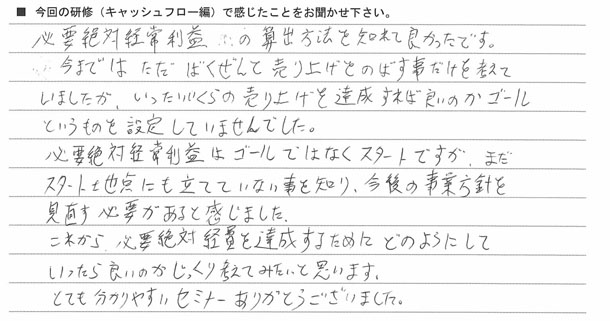 ■ 今回の研修（キャッシュフロー編）で感じたことをお聞かせ下さい。
必要絶対経常利益の算出方法を知れて良かったです。
今まではただばくぜんと売り上げをのばす事だけを考えて
いましたが、いったいいくらの売り上げを達成すれば良いのかゴール
というものを設定していませんでした。
必要絶対経常利益はゴールではなくスタートですが、まだ
スタート地点にも立てていない事を知り、今後の事業方針を
見直す必要があると感じました。
これから、必要絶対経費を達成するためにどのようにして
いったら良いのかじっくり考えてみたいと思います。
とても分かりやすいセミナーありがとうございました。